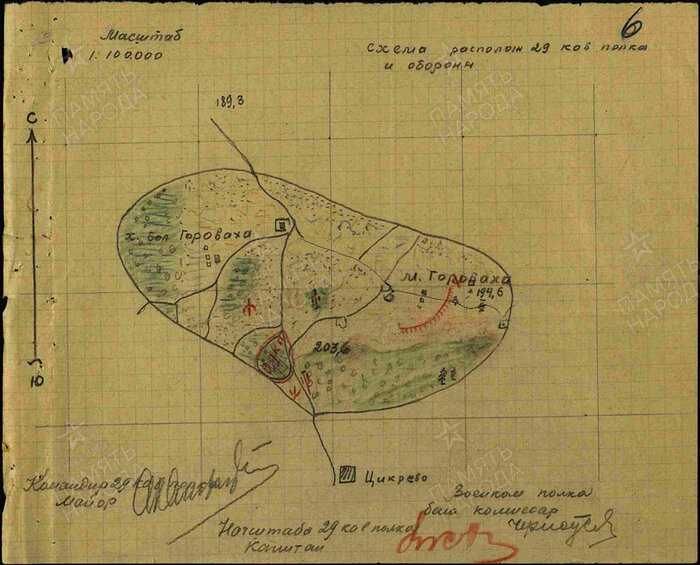 6
Масштаб
1:100.000
Схема располож 29 кав полка
и обороны
ПАМЯТЬ
НАРОДА
С
189,3
х. Бол Гороваха
м. Гороваха
194,6
203,6
Ю
Цикрево
Командир 29 кав полка
Майор
Военком полка
бат комиссар
Начштаба 29 кав полка
Капитан